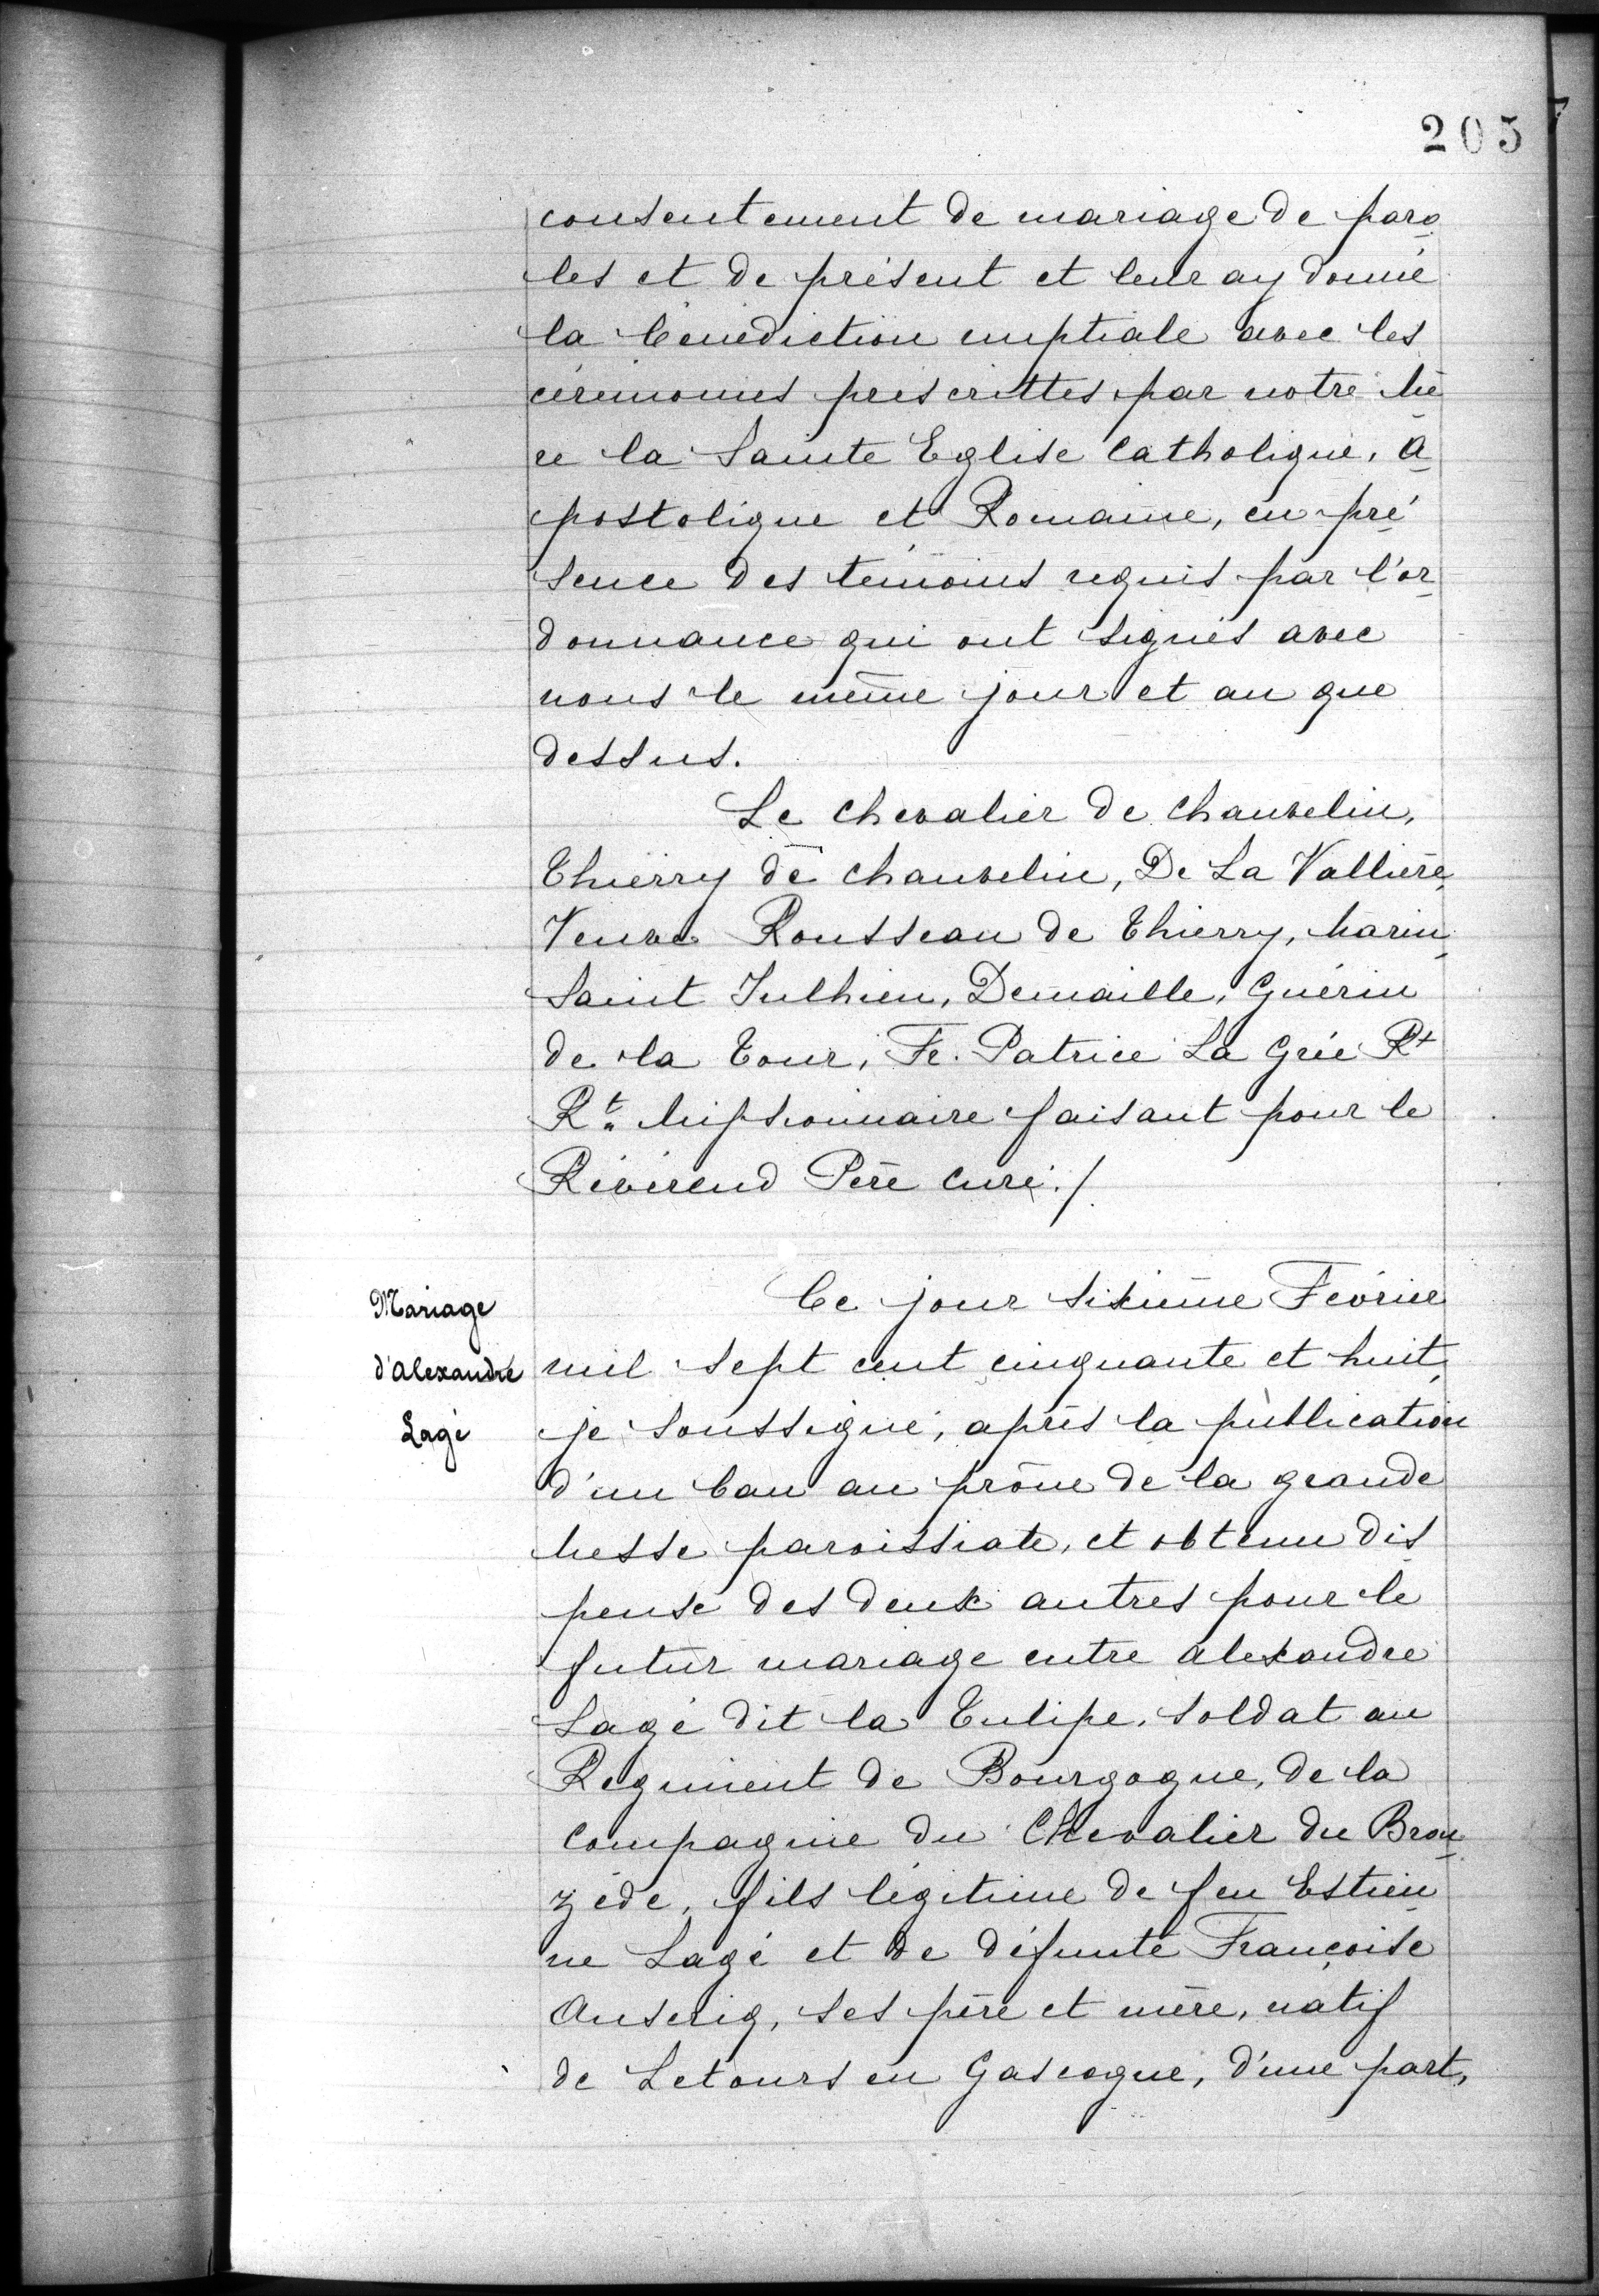 205
consentement de mariage de paro
les et de présent et leur ay donné
la bénédiction nuptiale avec les
cérémonies prescrittes par notre Mè
re la Sainte Eglise Catholique, A
postolique et Romaine, en pré
sence des témoins requis par l'or
donnance qui ont signés avec
nous le même jour et an que
dessus.
Le Chevalier de Chauvelin,
Thierry de Chauvelin, De La Vallière
Veuve Rousseau de Thierry, Marin
Saint Julhien, Demaille, Guérin
de la Tour, Fr. Patrice La Grée Rt
Rt. Missionnaire faisant pour le
Révérend Père Curé./.
Mariage
d'Alexandre
Lagé
Ce jour sixième Février
mil sept cent cinquante et huit,
je soussigné, après la publication
d'un ban au prône de la grande
Messe paroissiate, et obtenu dis
pense des deux autres pour le
futur mariage entre Alexandre
Lagé dit la Tulipe, soldat au
Régiment de Bourgogne, de la
Compagnie du Chevalier du Brou
zède, fils légitime de feu Estien
ne Lagé et de défunte Françoise
Anserig, ses père et mère, natif
de Letours en Gascogne, d'une part,